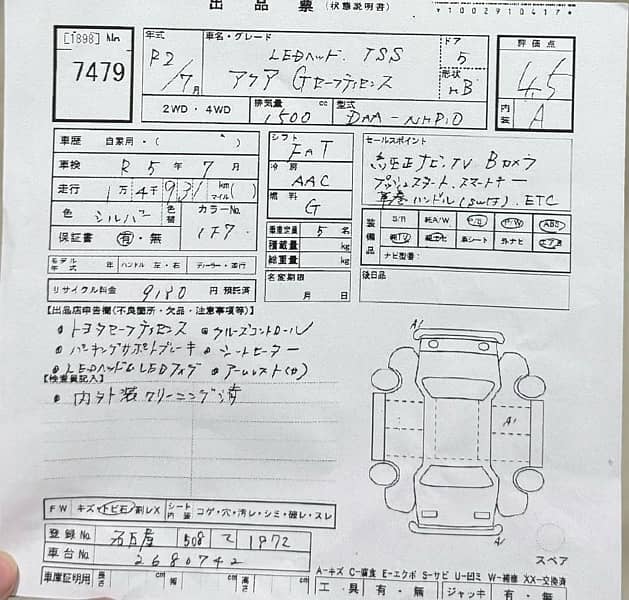 出品票 (状態説明書)
*1002910417*
[1898] No.
7479
年式 R2/7月
車名・グレード LEDヘッド. TSS
アクア Gセーフティセンス
ドア 5
形状 HB
評価点 4.5
内装 A
2WD・4WD
排気量 1500 cc
型式 DAA-NHP10
車歴 自家用・( )
車検 R5年7月
走行 1万4千931 km(マイル)
色 シルバー 色替 カラーNo. 1F7
保証書 有・無
シフト FAT
冷房 AAC
燃料 G
乗車定員 5名
積載量 kg
総重量 kg
名変期限 月 日
セールスポイント
純正ナビ.TV Bカメラ
プッシュスタート.スマートキー
革巻ハンドル(SW付). ETC
装備品 S/R 純A/W P/S P/W ABS
純TV 純ナビ 革シート 外ナビ エアB
ナビ型番:
後日品
モデル年式 年 ハンドル 左・右 ディーラー・並行
リサイクル料金 9180 円 預託済
【出品店申告欄(不良箇所・欠品・注意事項等)】
・トヨタセーフティセンス ・クルーズコントロール
・パーキングサポートブレーキ ・シートヒーター
・LEDヘッド&LEDフォグ ・アームレスト(中)
【検査員記入】
・内外装クリーニング済
A1
A1
A1
FW キズ・トビ石・割レX シート内装 コゲ・穴・汚レ・シミ・破レ・スレ
登録No. 名古屋 508 て 1972
車台No. 2680742
車庫証明用 長さ cm 幅 cm 高さ cm
スペア
A-キズ C-腐食 E-エクボ S-サビ U-凹ミ W-補修 XX-交換済
工具 有・無 ジャッキ 有・無